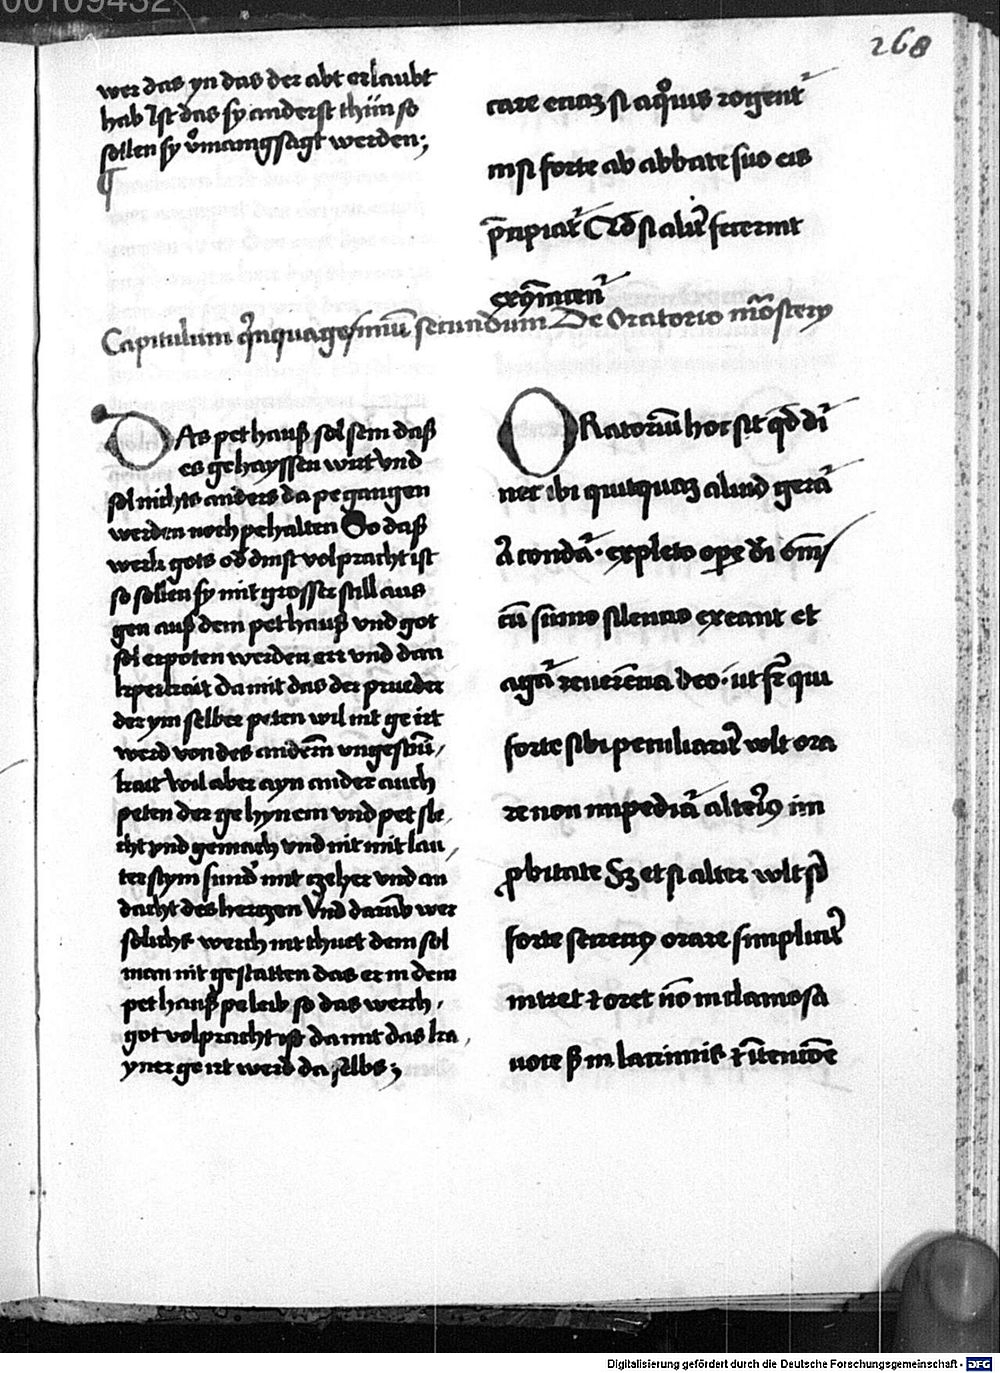 00109432
268
wer das yn das der abt erlaubt
hab Ist das sy anderst thün so
sollen sy vermangsagt werden;
care etiam si a quouis rogent᷑
nisi forte ab abbate suo eis
p̄cipiat᷑ Qd si alit᷑ fecerint
excōmunicent᷑
Capitulum q̄nquagesimū secundum De Oratorio mōstery
DAs pethauß sol sein daß
es gehayssen wirt vnd
sol nichts anders da pegangen
werden noch pehalten So daß
werk gots od dinst volpracht ist
so sollen sy mit grosser still aus
gen auß dem pethauß vnd got
sol erpoten werden err vnd dan
kperkait da mit das der prueder
der ym selber peten wil nit ge irt
werd von des andern vngestüm/
kait Wil aber ayn ander auch
peten der ge hyn ein vnd pet sle,
cht vnd gemach vnd nit mit lau/
ter stym sund᷑ mit czeher vnd an
dacht des herczen Vnd darūb wer
solichs werch nit thuet dem sol
man nit gestatten das er in dem
pethauß peleib so das werch,
got volpracht ist da mit das ka,
yner ge irt werd da selbs;
ORatoriū hoc sit qd di᷑
nec ibi quitquam aliud gera᷑
a᷑ condat᷑. expleto ope di om̄s
cū sūmo silentio exeant et
agat᷑ reuerentia deo. ut fr̄ qui
forte sibi peculiarit᷑ wlt ora
re non impediat᷑ alterius im
probitate Sz et si alter wlt s᷑
forte secretius orare simplicit᷑
intret & oret nō in clamosa
uoce s; in lacrimis & ītentiōe
Digitalisierung gefördert durch die Deutsche Forschungsgemeinschaft - DFG